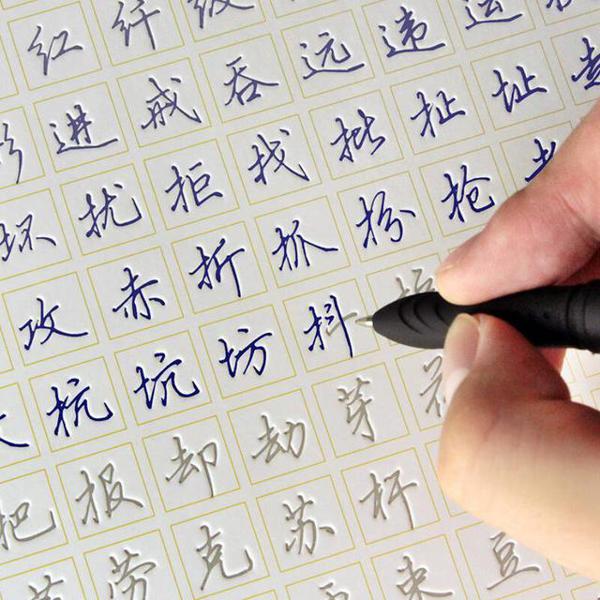 红 纤 级
进 戒 吞 远 违 运
坏 扰 拒 找 批 扯 址 走
攻 赤 折 抓 扮 抢
抗 坑 坊 抖
把 报 却 劫 芽 花
劳 克 苏 杆
束 豆